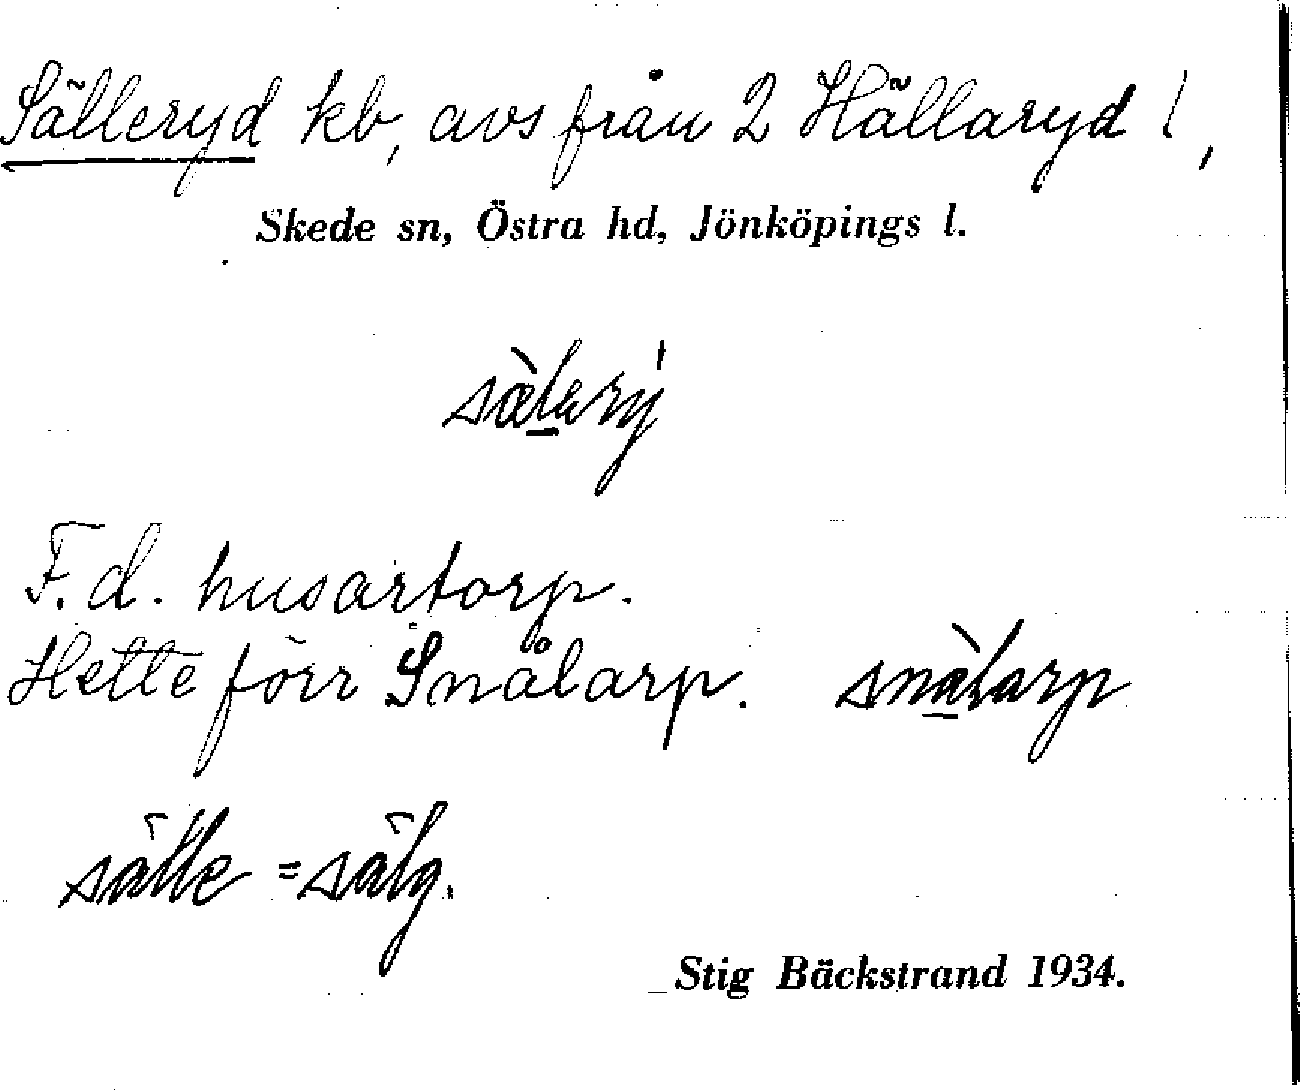 Sälleryd kb, avs från 2 Hällaryd l,
Skede sn, Östra hd, Jönköpings l.
F.d. husartorp.
Hette förr Snålarp. snålarp
sälle = sälg.
Stig Bäckstrand 1934.